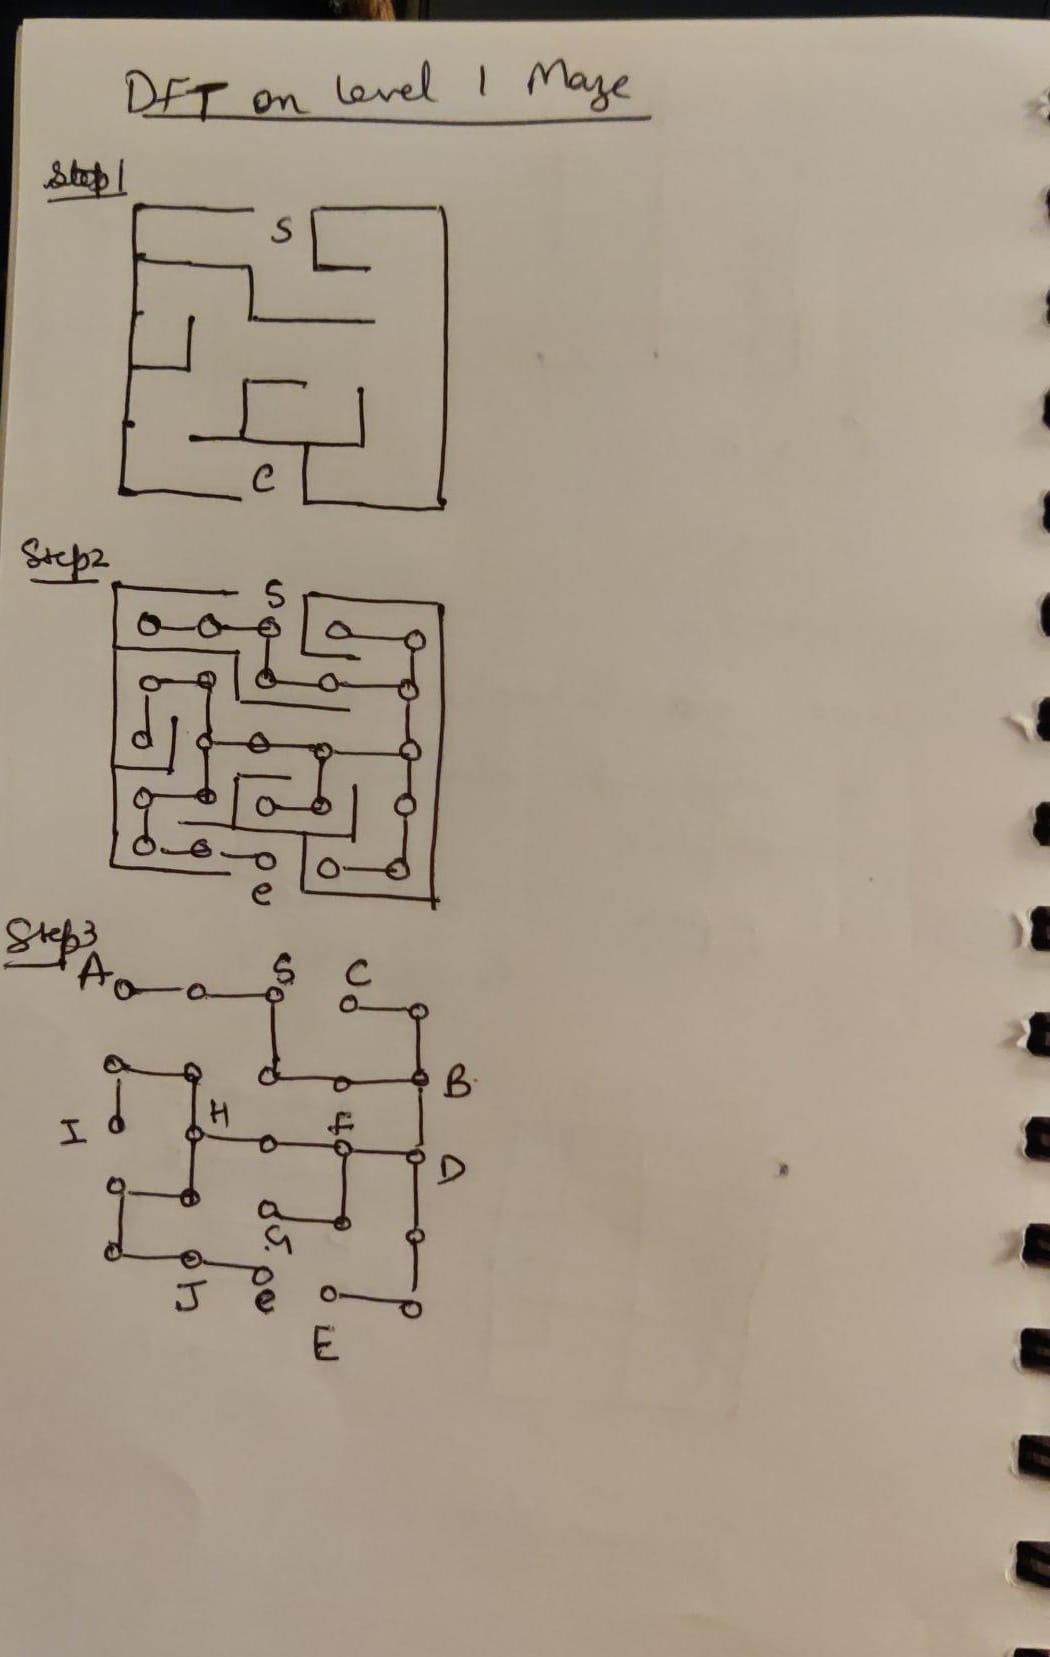 DFT on Level 1 Maze
Step1
S
e
Step2
S
e
Step3
A
S
C
B
H
F
I
D
G
J
e
E